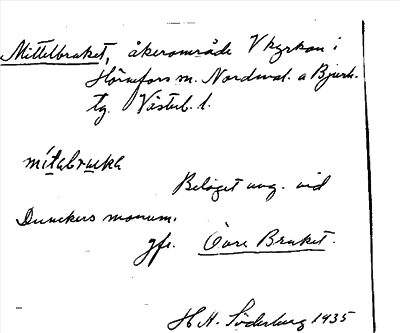 Mittelbruket, åkerområde V kyrkan i
Hörnefors sn. Nordmal. o Bjurh.
tg. Västerb. l.
mítəbru̲kə
Beläget ung. vid
Dunckers monum.
jfr. Övre Bruket.
H H. Söderberg 1935